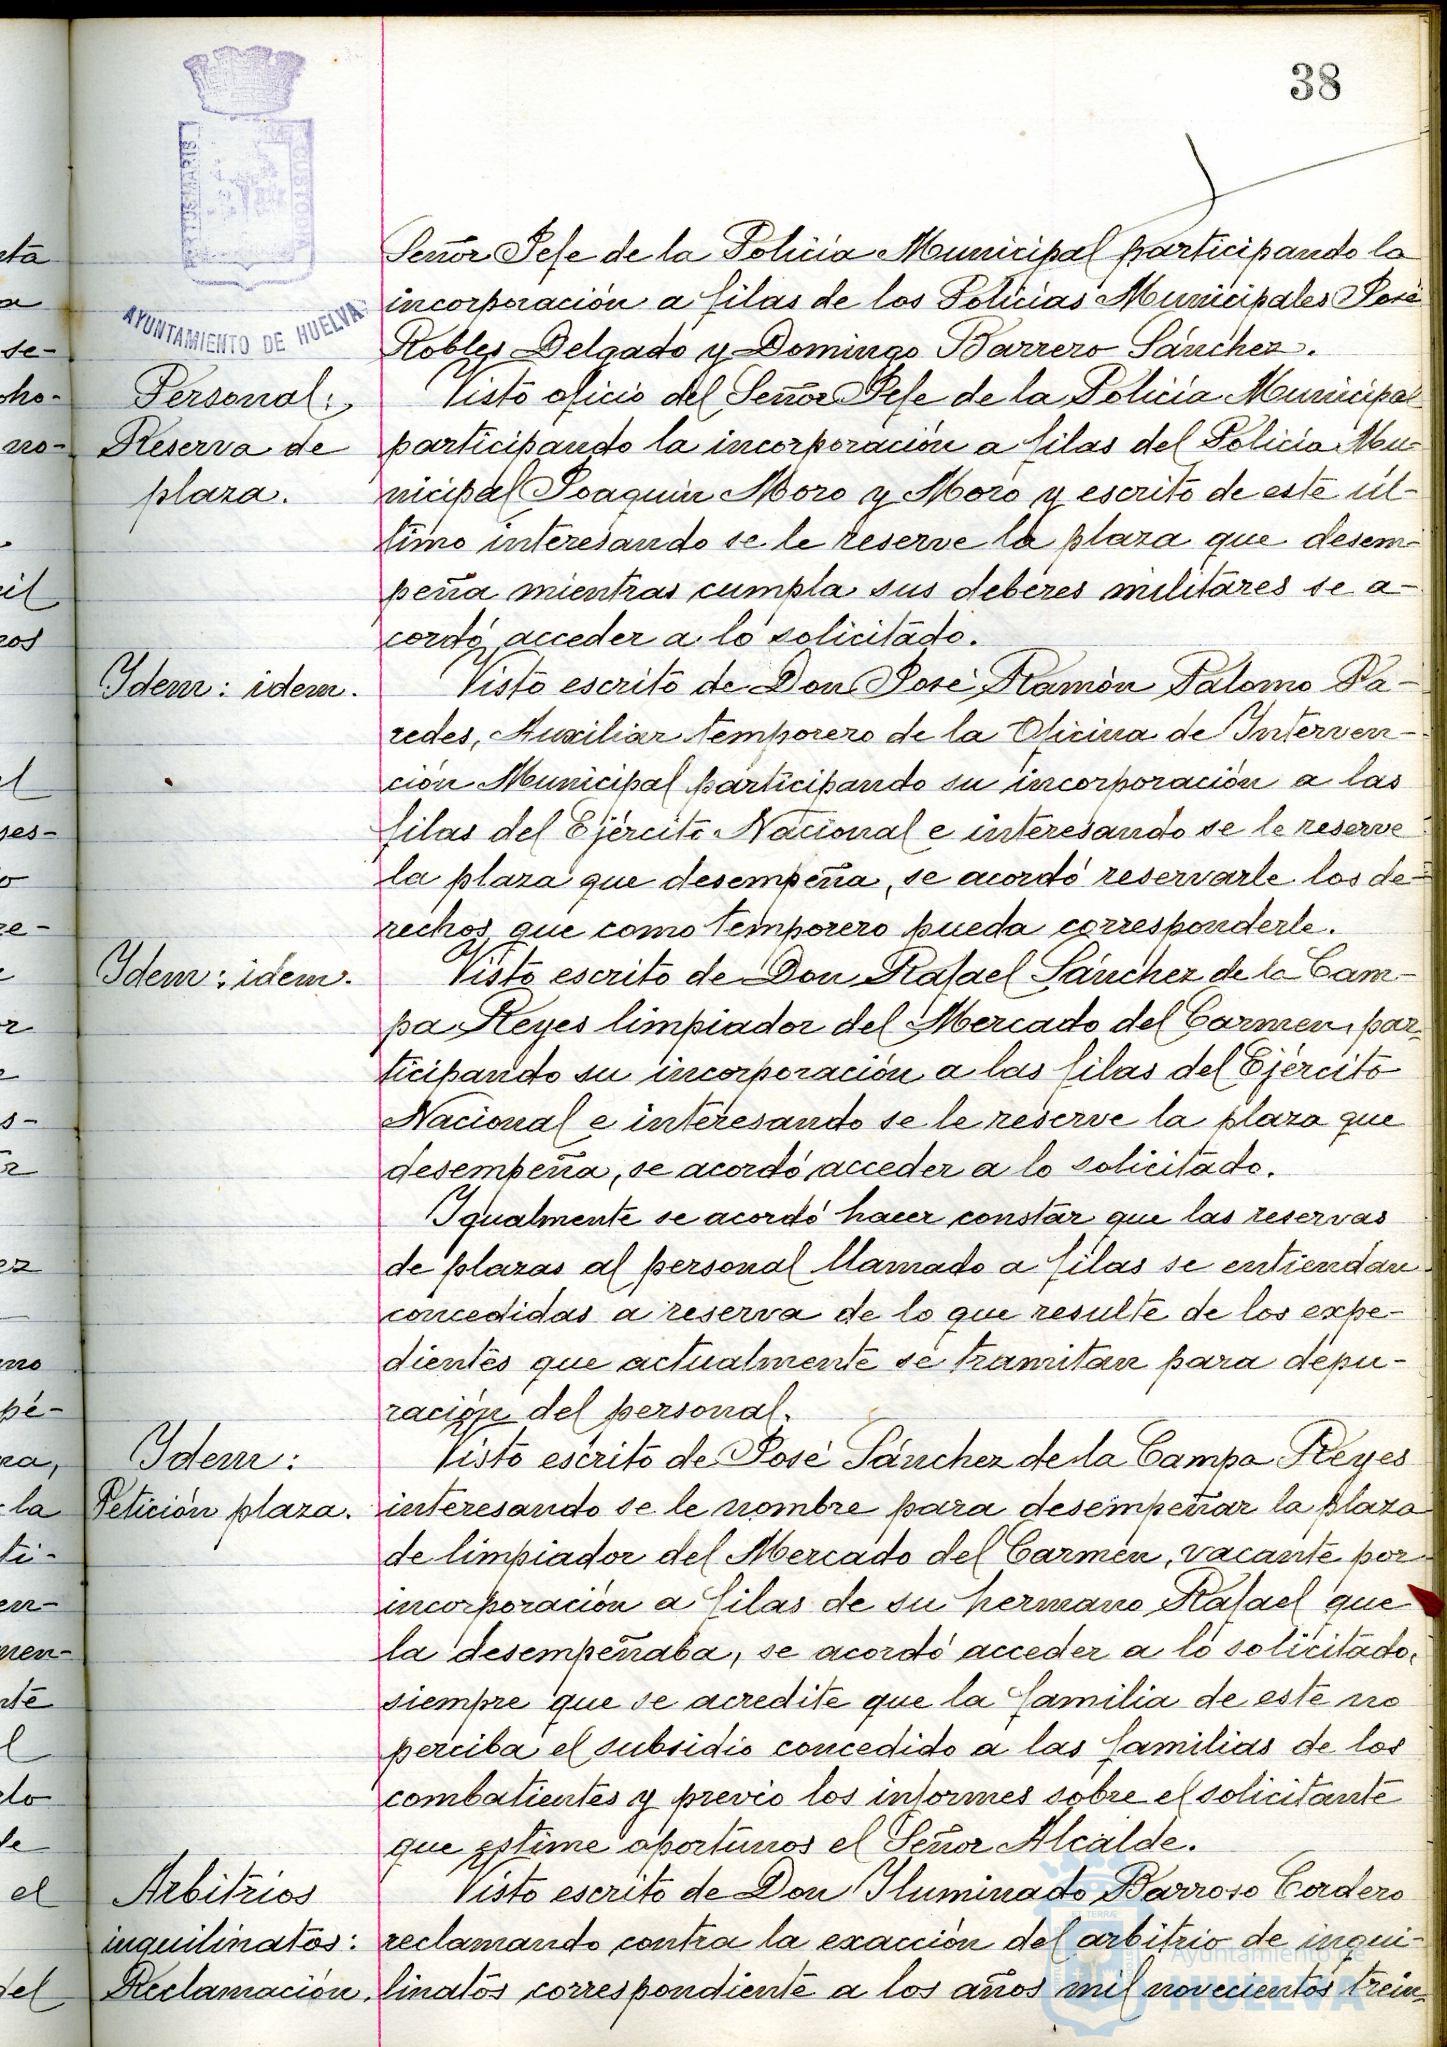 38
PORTUS MARIS
CUSTODIA
AYUNTAMIENTO DE HUELVA
Señor Jefe de la Policía Municipal participando la
incorporación a filas de los Policías Municipales José
Robles Delgado y Domingo Barrero Sánchez.
Personal:
Reserva de
plaza.
Visto oficio del Señor Jefe de la Policía Municipal
participando la incorporación a filas del Policía Mu-
nicipal Joaquín Moro y Moro y escrito de este úl-
timo interesando se le reserve la plaza que desem-
peña mientras cumpla sus deberes militares se a-
cordó acceder a lo solicitado.
Idem: idem.
Visto escrito de Don José Ramón Palomo Pa-
redes, Auxiliar temporero de la Oficina de Interven-
ción Municipal participando su incorporación a las
filas del Ejército Nacional e interesando se le reserve
la plaza que desempeña, se acordó reservarle los de-
rechos que como temporero pueda corresponderle.
Idem: idem.
Visto escrito de Don Rafael Sánchez de la Cam-
pa Reyes limpiador del Mercado del Carmen, par-
ticipando su incorporación a las filas del Ejército
Nacional e interesando se le reserve la plaza que
desempeña, se acordó acceder a lo solicitado.
Igualmente se acordó hacer constar que las reservas
de plazas al personal llamado a filas se entiendan
concedidas a reserva de lo que resulte de los expe-
dientes que actualmente se tramitan para depu-
ración del personal.
Idem:
Petición plaza.
Visto escrito de José Sánchez de la Campa Reyes
interesando se le nombre para desempeñar la plaza
de limpiador del Mercado del Carmen, vacante por
incorporación a filas de su hermano Rafael que
la desempeñaba, se acordó acceder a lo solicitado,
siempre que se acredite que la familia de este no
perciba el subsidio concedido a las familias de los
combatientes y previo los informes sobre el solicitante
que estime oportunos el Señor Alcalde.
Arbitrios
inquilinatos:
Reclamación.
Visto escrito de Don Iluminado Barroso Cordero
reclamando contra la exacción del arbitrio de inqui-
linatos correspondiente a los años mil novecientos trein-
Ayuntamiento de
HUELVA